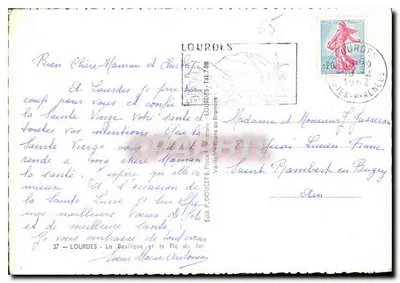 65
LOURDES
Bien Chère Maman et
A Lourdes je prie beau
coup pour vous et confie à
la Sainte Vierge votre santé et
toutes vos intentions. Que la
Sainte Vierge
rende à ma chère Maman
la santé. J'espère qu'elle va
mieux. Et à l'occasion de
la Sainte Lucie je lui offre
mes meilleurs Vœux de
et de meilleure santé.
Je vous embrasse de tout cœur
Sœur Marie
37 — LOURDES - La Basilique et le Pic du Jer
Edit. P. DOUCET
LOURDES
Véritable
au Bromure
0,20
LOURDES
Madame et Monsieur
Jean Lucien
Saint Rambert en Bugey
Ain